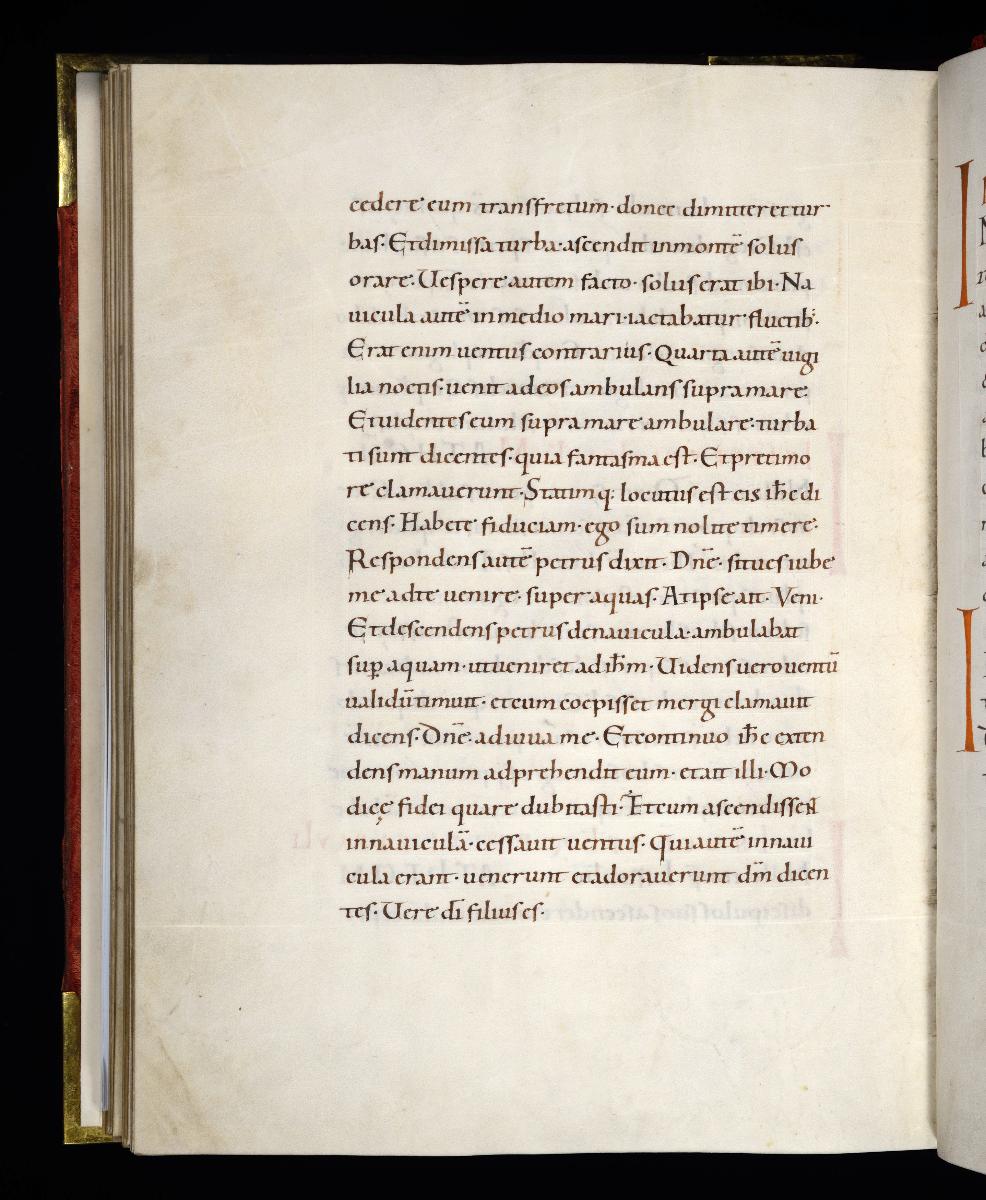 cedere eum transfretum· donec dimitteret tur
bas· Et dimissa turba· ascendit inmontē solus
orare· Uespere autem facto· solus erat ibi· Na
uicula autē in medio mari· iactabatur fluctib·
Erat enim uentus contrarius· Quarta autē uigi
lia noctis· uenit adeos ambulans supra mare
Et uidentes eum supra mare ambulare· turba
ti sunt dicentes· quia fantasma est· Et pretimo
re clamauerunt· Statimq; locutus est eis ihc di
cens· Habete fiduciam· ego sum nolite timere·
Respondens autē petrus dixit· Dnē· situes iube
me adte uenire· super aquas· Atipse ait· Veni·
Et descendens petrus denauicula· ambulabat
sup aquam· utueniret ad ihm· Uidens uero uentū
validū timuit· et cum coepisset mergi clamauit
dicens· Dnē· adiuua me· Et continuo ihc exten
dens manum adprehendit eum· et ait illi· Mo
dicę fidei quare dubitasti· Et cum ascendisset
in nauiculā· cessauit uentus· Qui autē in naui
cula erant· uenerunt et adorauerunt dm̄ dicen
tes· Uere dī filius es·